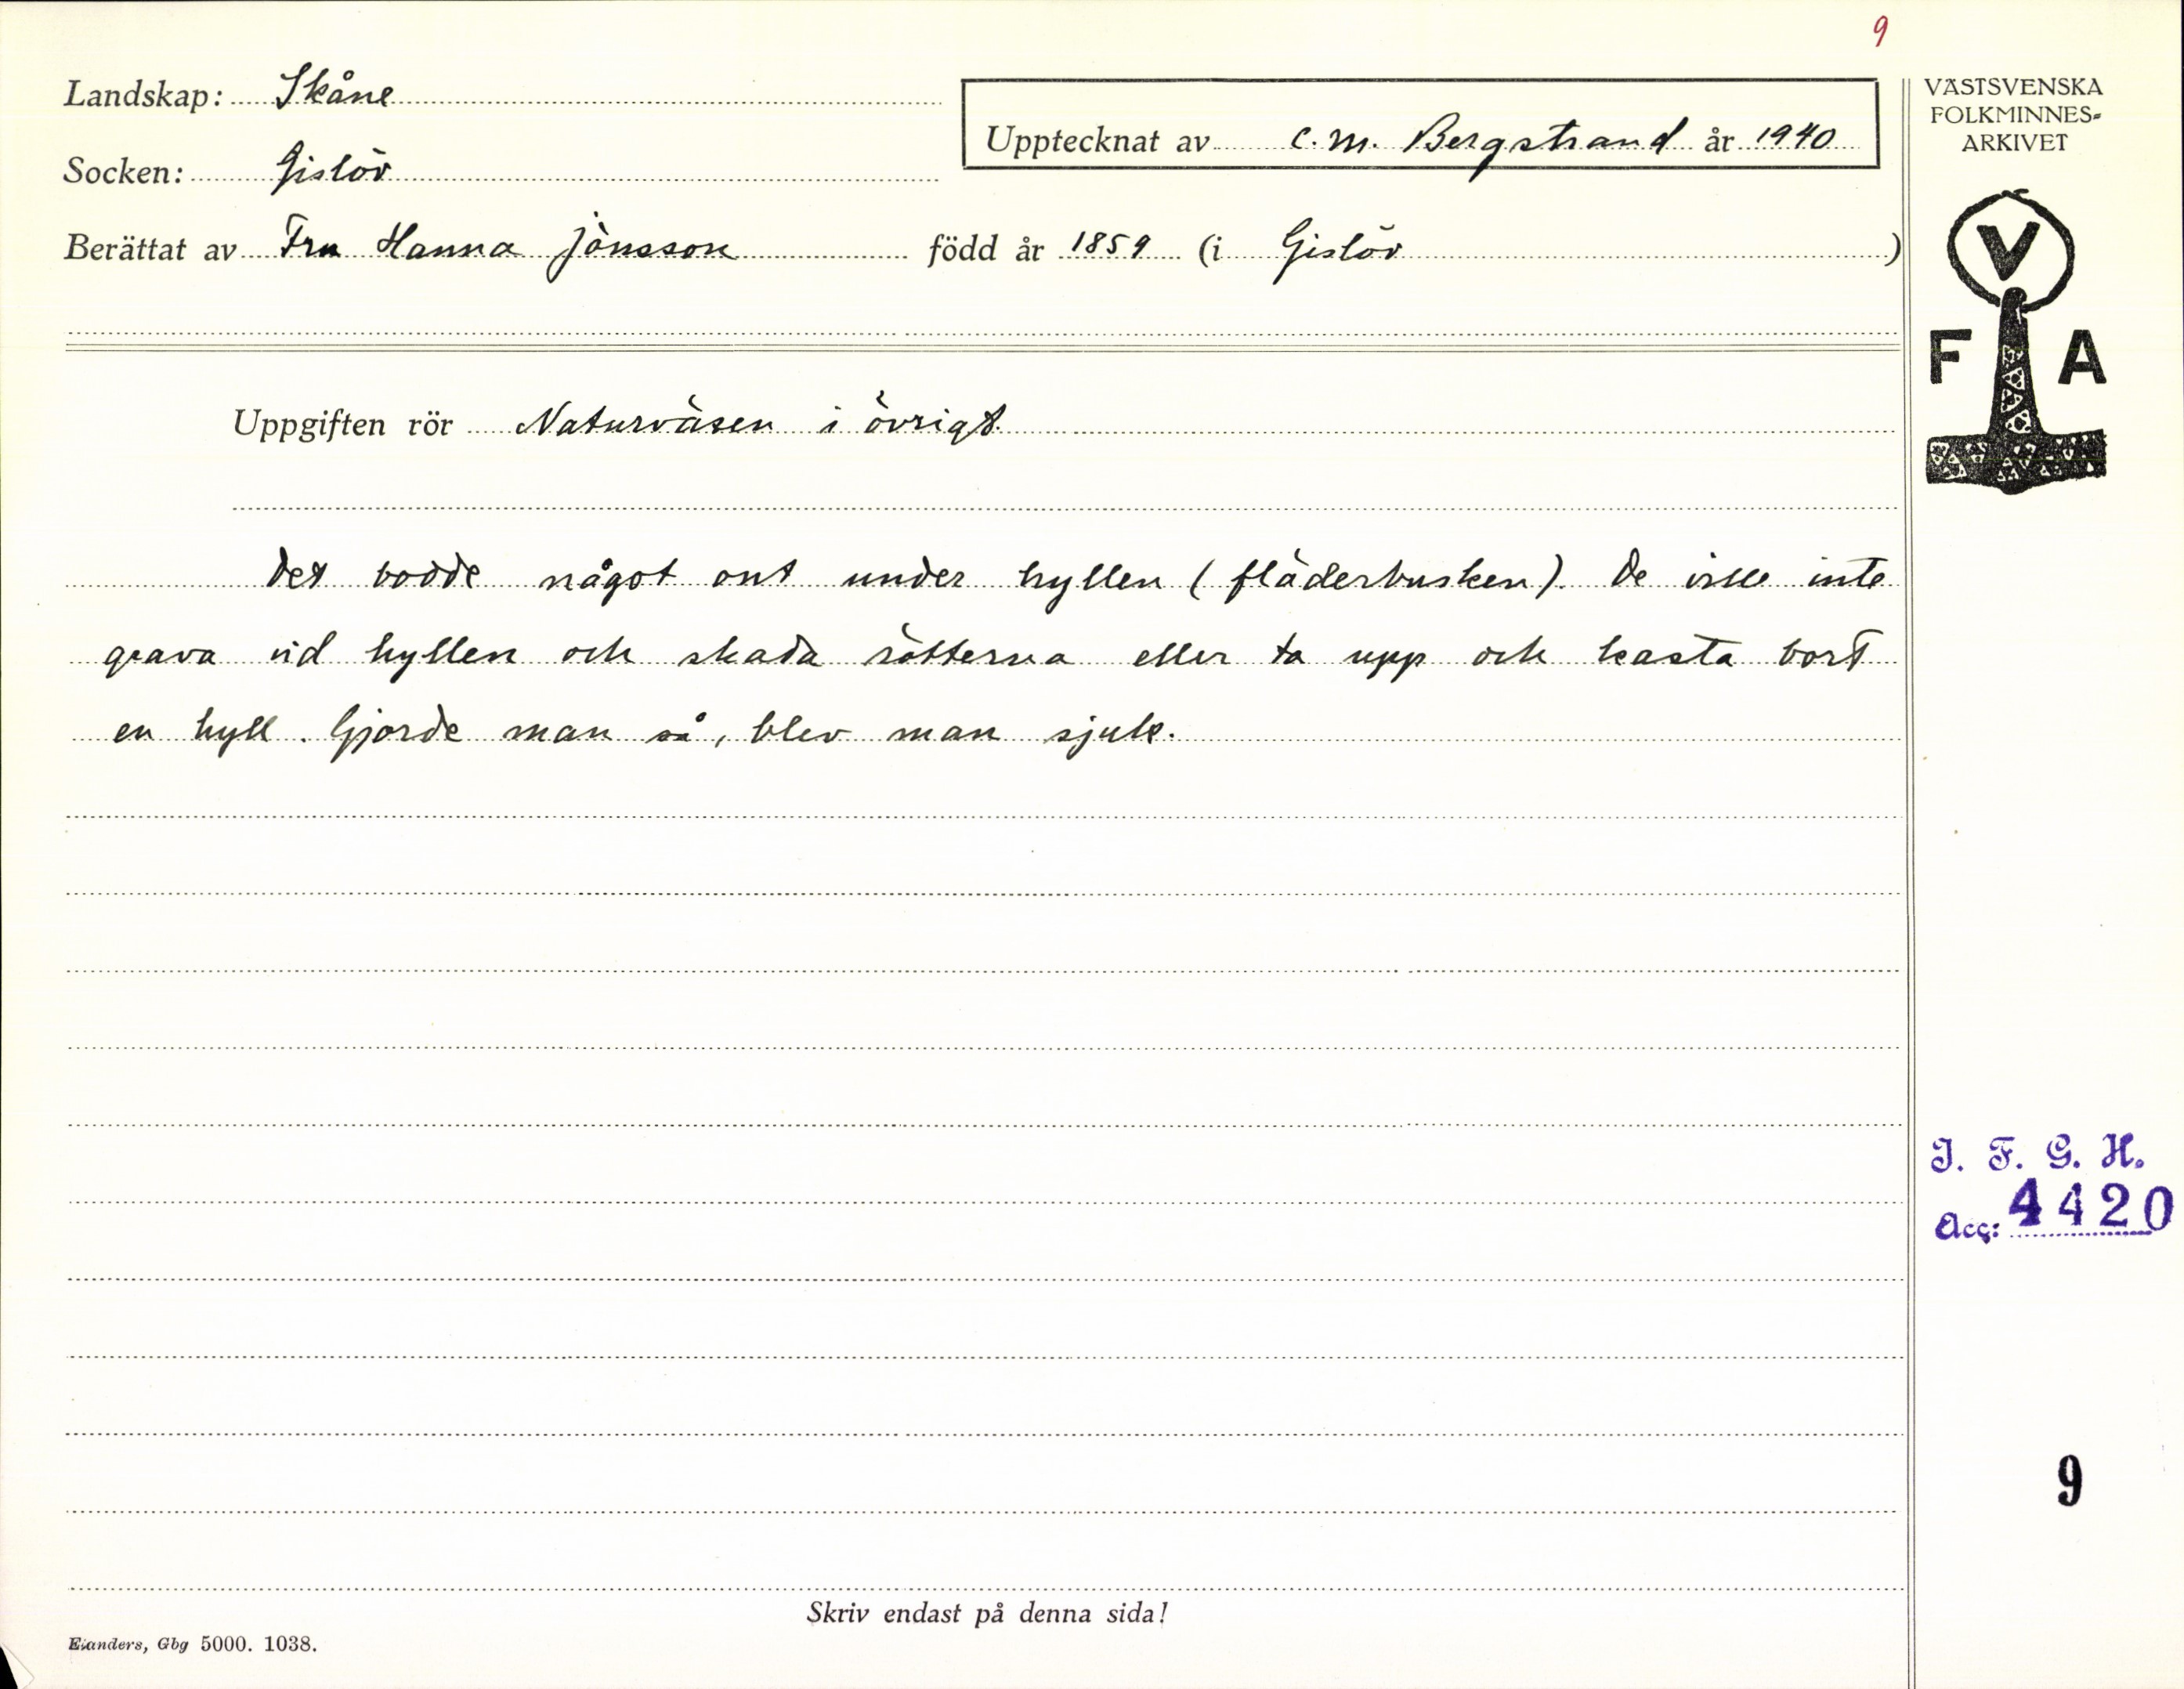 9
Landskap: Skåne
Upptecknat av C. M. Bergstrand år 1940
Socken: Gislöv
Berättat av Fru Hanna Jönsson född år 1859 (i Gislöv )
VÄSTSVENSKA
FOLKMINNES-
ARKIVET
V
F A
Uppgiften rör Naturväsen i övrigt.
Det bodde något ont under hyllen (fläderbusken). De ville inte
gräva vid hyllen och skada rötterna eller ta upp och kasta bort
en hyll. Gjorde man så, blev man sjuk.
I. F. G. H.
Acc: 4420
9
Skriv endast på denna sida!
Elanders, Gbg 5000. 1038.